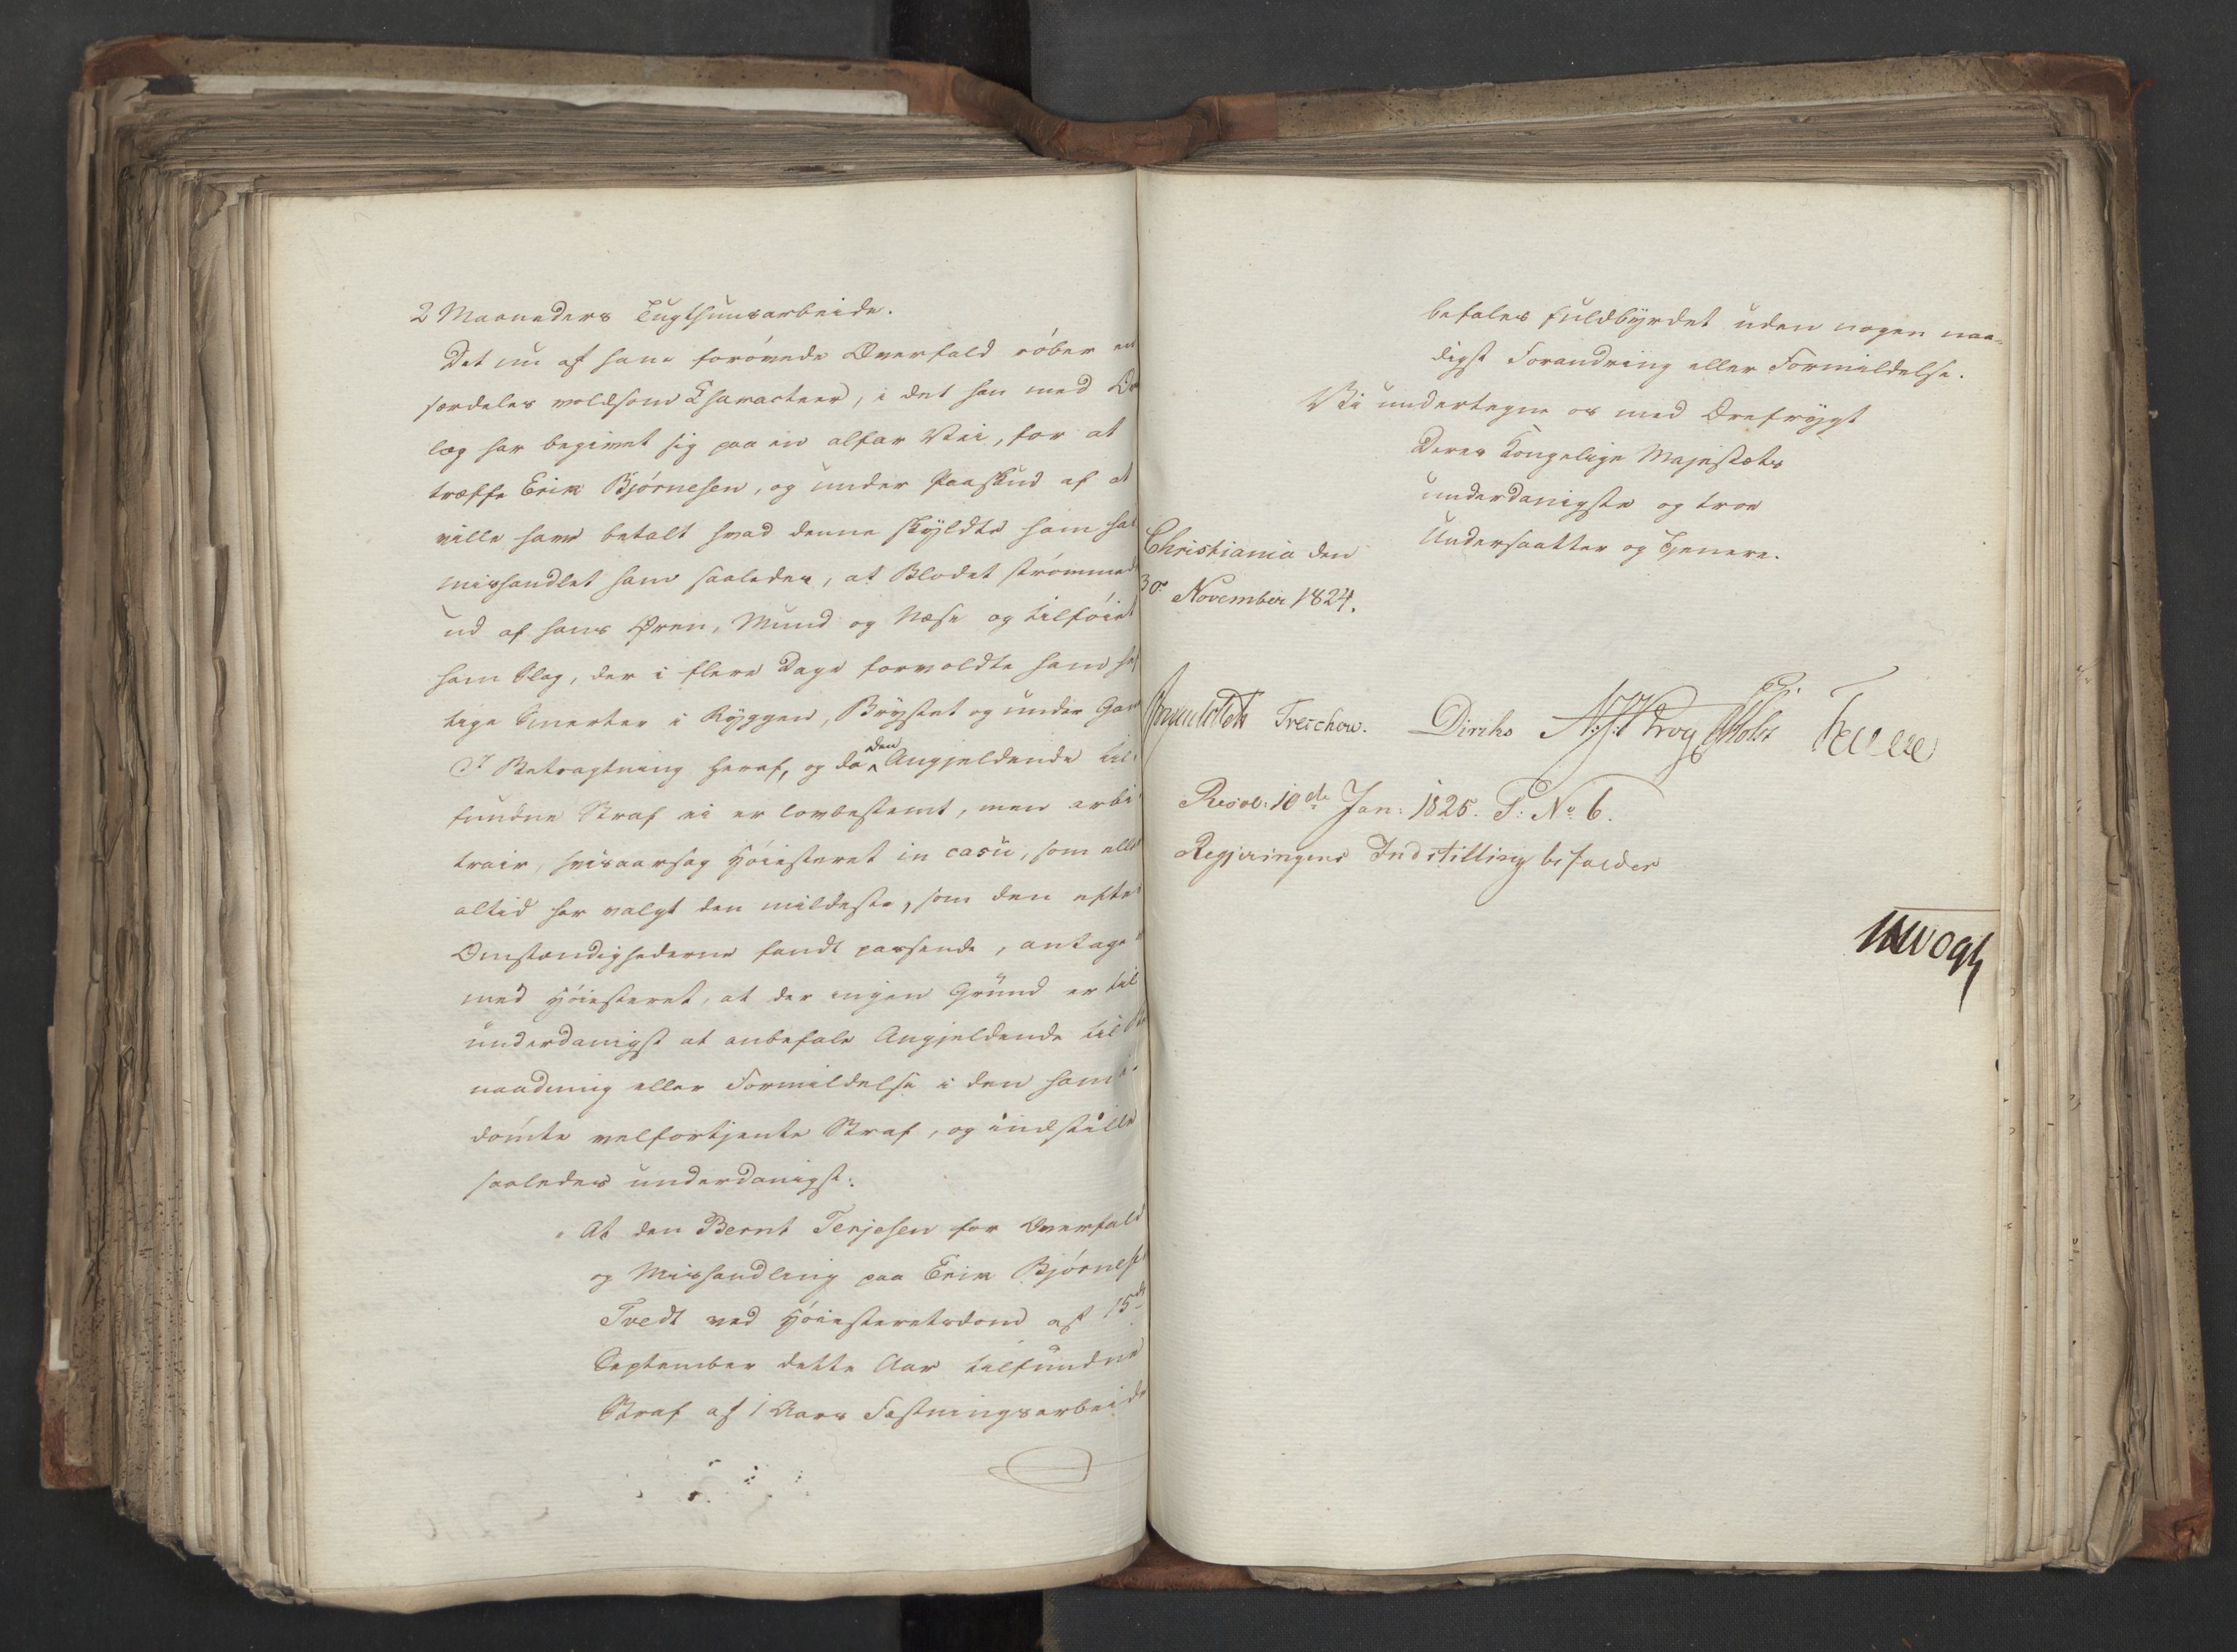 2 Maaneders Tugthuusarbeide.
Det nu af ham forøvede Overfald røber en
særdeles voldsom Characteer, i det han med O
læg har begivet sig paa en alfar Vei, for at
træffe Erik Bjørnesen, og under Paaskud af at
ville have betalt hvad denne skyldte ham har
mishandlet ham saaledes, at Blodet strømmed
ud af hans Øren, Mund og Næse og tilføiet
ham Slag, der i flere Dage forvoldte ham hef
tige Smerter i Ryggen, Brystet og under Gan
I Betragtning heraf, og da den Angjeldende til-
fundne Straf ei er lovbestemt, men arbi-
trair, hvisaarsag Høiesteret in casu, som ellers
altid har valgt den mildeste, som den efter
Omstændighederne fandt passende, antages
med Høiesteret, at der ingen Grund er til
underdanigst at anbefale Angjeldende til Be
naadning eller Formildelse i den ham i-
dømte velfortjente Straf, og indstille
saaledes underdanigst:
" At den Bernt Terjesen for Overfald
og Mishandling paa Erik Bjørnese
Tvedt ved Høiesteretsdom af 15de
September dette Aar tilfundne
Straf af 1 Aars Fæstningsarbeide
befales fuldbyrdet uden nogen naa-
digst Forandring eller Formildelse.
Vi undertegne os med Ærefrygt
Deres Kongelige Majestæts
underdanigste og troe
Undersaatter og Tjenere.
Christiania den
30 November 1824.
Treschow. Diriks N:J:Krog Holst
Resol: 10de Jan: 1825. P: No 6.
Regjeringens Indstilling bifaldes